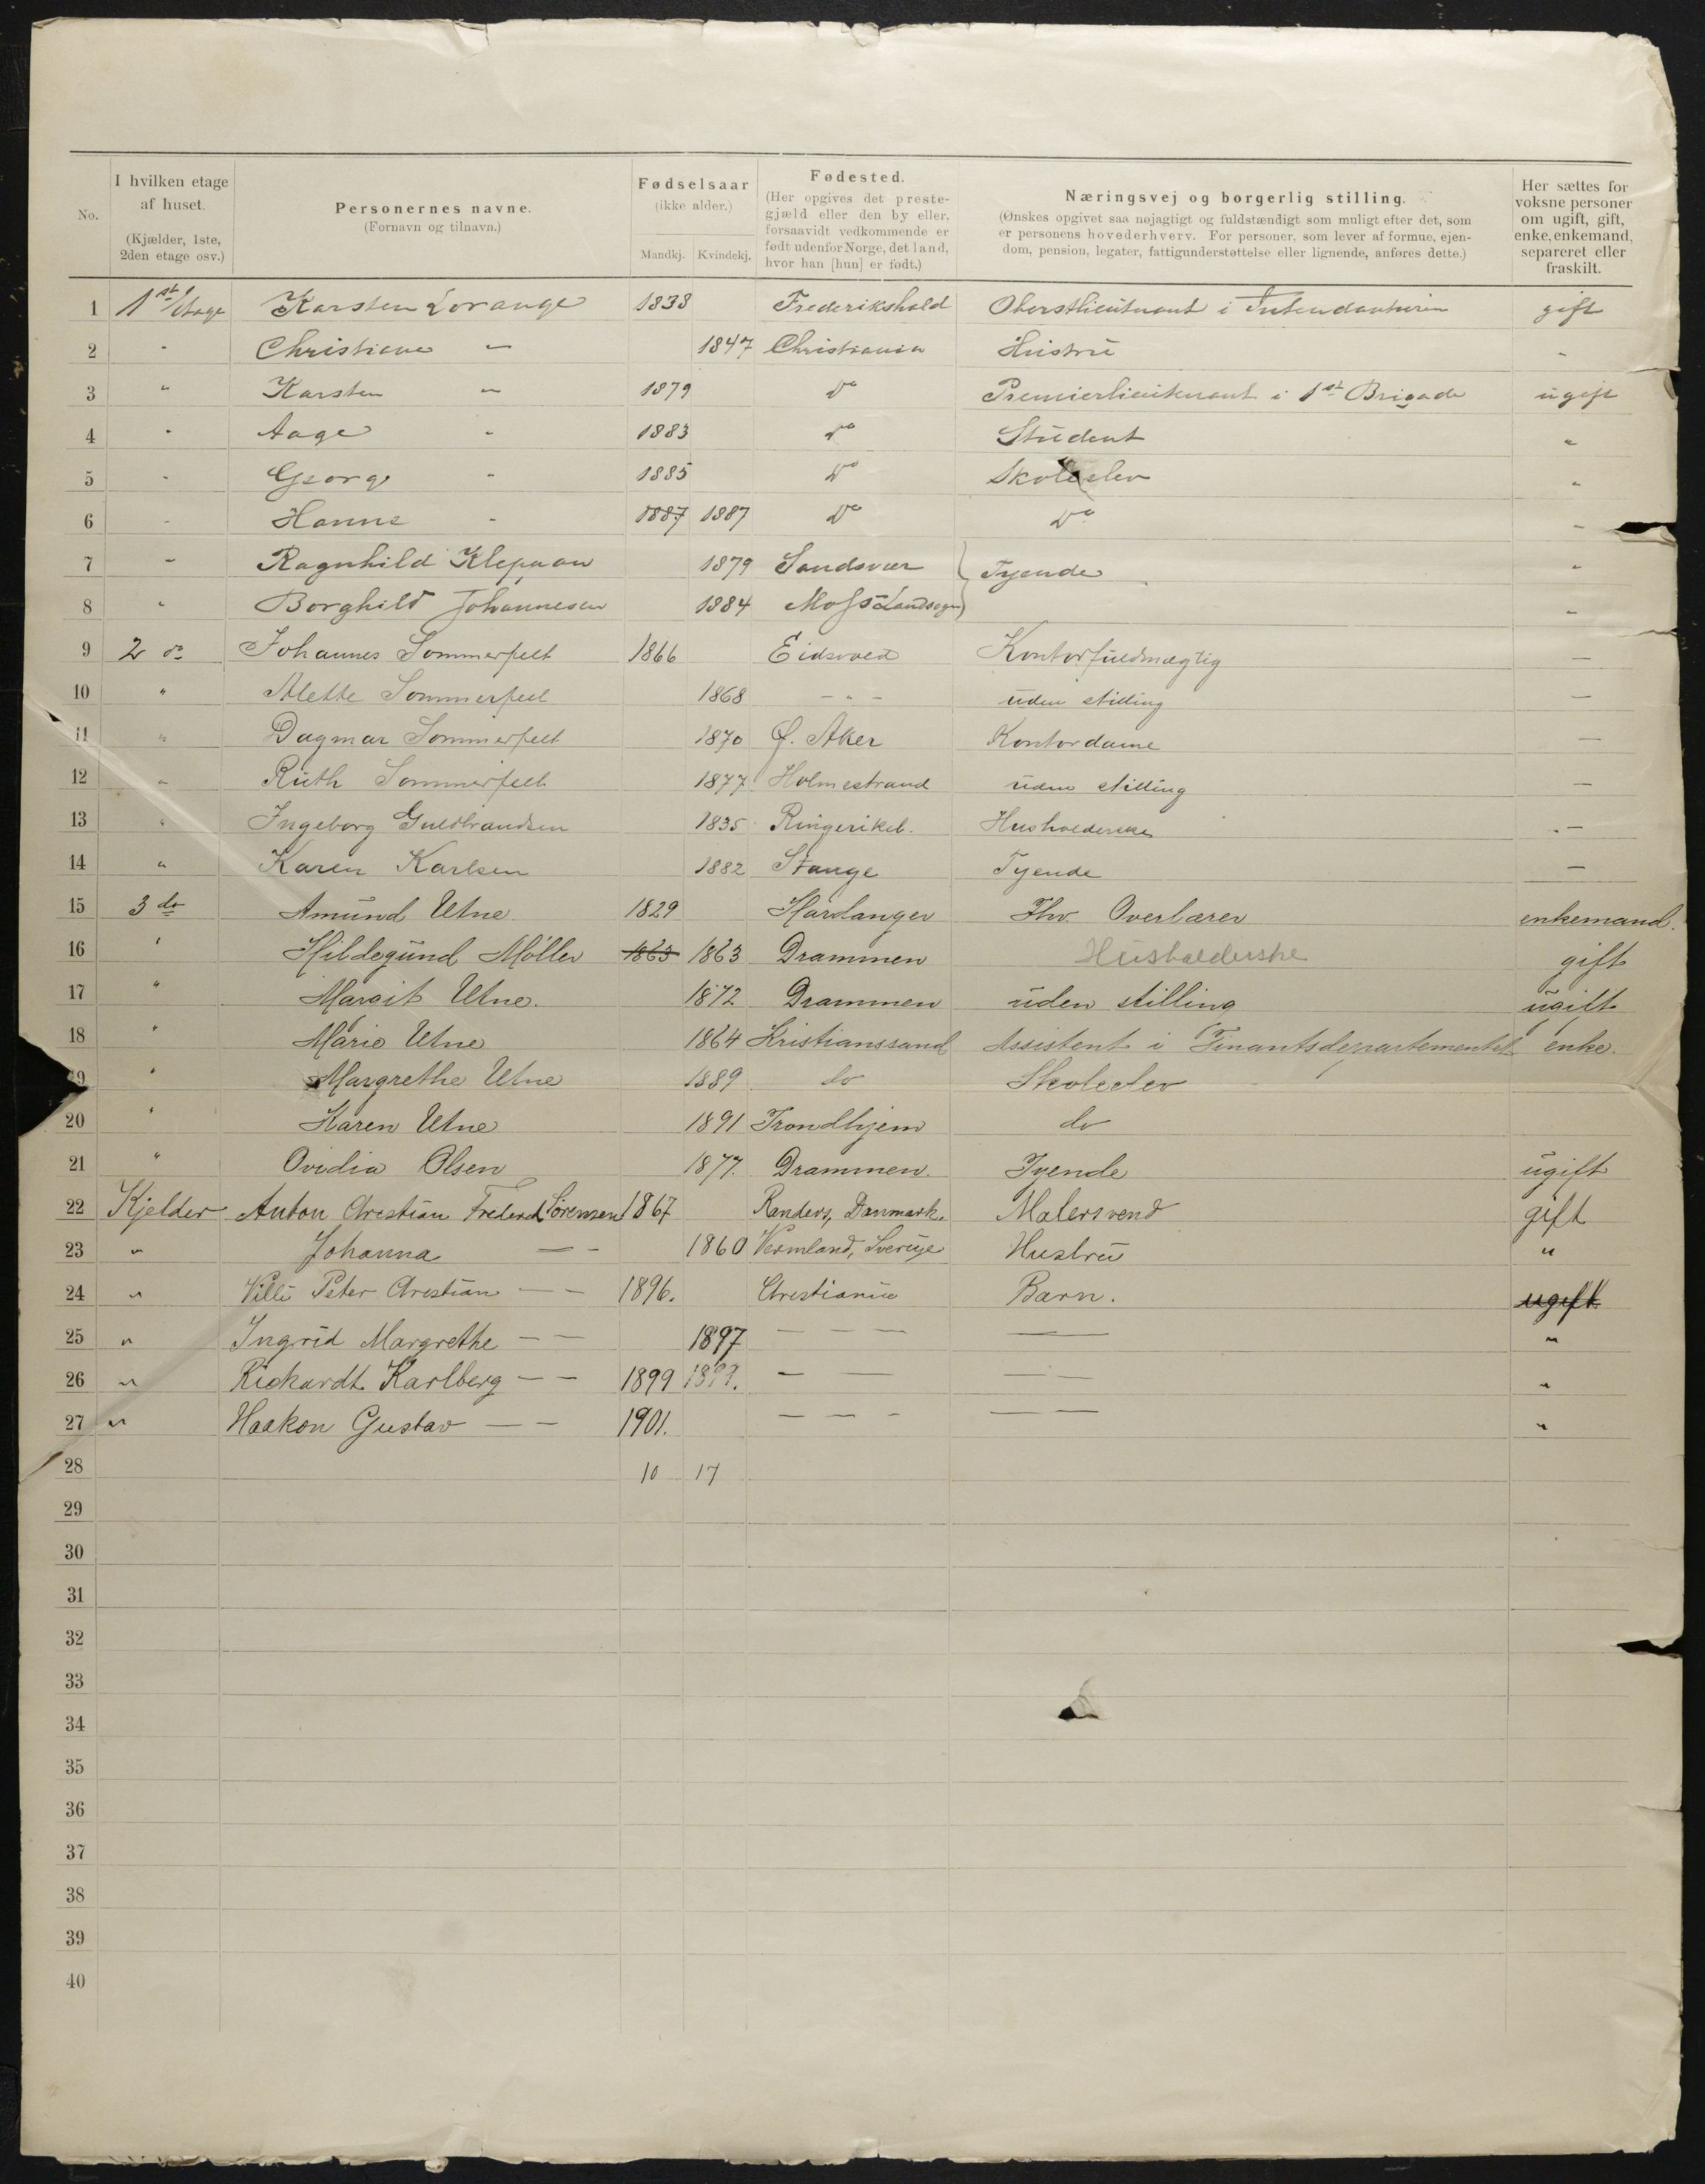 No.
I hvilken etage af huset. (Kjælder, 1ste, 2den etage osv.)
Personernes navne. (Fornavn og tilnavn.)
Fødselsaar (ikke alder.) Mandkj. Kvindekj.
Fødested. (Her opgives det prestegjæld eller den by eller, forsaavidt vedkommende er født udenfor Norge, det land, hvor han [hun] er født.)
Næringsvej og borgerlig stilling. (Ønskes opgivet saa nøjagtigt og fuldstændigt som muligt efter det, som er personens hovederhverv. For personer, som lever af formue, ejendom, pension, legater, fattigunderstøttelse eller lignende, anføres dette.)
Her sættes for voksne personer om ugift, gift, enke, enkemand, separeret eller fraskilt.
1 1st Etage Karsten Lorange 1838 Frederikshald Oberstlieutnant i Intendanturen gift
2 " Christiane " 1847 Christiania Hustru "
3 " Karsten " 1879 Do Premierlieutenant i 1st Brigade ugift
4 " Aage " 1883 Do Student "
5 " George " 1885 Do Skoleelev "
6 " Hanne " 1887 1887 Do Do "
7 " Ragnhild Klepaan 1879 Sandsvær } Tyende "
8 " Borghild Johannesen 1884 Moss Landsogn "
9 2 do Johannes Sommerfelt 1866 Eidsvold Kontorfuldmægtig —
10 " Alette Sommerfelt 1868 - " - uden stilling —
11 " Dagmar Sommerfelt 1870 Ø. Aker Kontordame —
12 " Ruth Sommerfelt 1877 Holmestrand uden stilling —
13 " Ingeborg Guldbrandsen 1835 Ringerike. Husholderske —
14 " Karen Karlsen 1882 Stange Tyende —
15 3 do Amund Utne 1829 Hardanger Fhv. Overlærer enkemand.
16 " Hildegund Møller 1863 1863 Drammen Husholderske gift
17 " Margit Utne. 1872 Drammen uden stilling ugift
18 " Marie Utne 1864 Kristianssand Assistent i Finantsdepartementet enke.
19 " Margrethe Utne 1889 do Skoleelev
20 " Karen Utne 1891 Trondhjem do
21 " Ovidia Olsen 1877. Drammen. Tyende ugift
22 Kjelder Anton Chrestian Frederek Sørensen 1867 Randers, Danmark. Malersvend gift
23 " Johanna — - 1860 Vermland, Sverige Hustru "
24 " Villi Peter Chrestian — - 1896. Chrestiania Barn. ugift
25 " Ingrid Margrethe — — 1897 — — — —— "
26 " Rickardt Karlberg — — 1899 1899. — — — — "
27 " Haakon Gustav — — 1901. — — - — — "
28 10 17
29
30
31
32
33
34
35
36
37
38
39
40